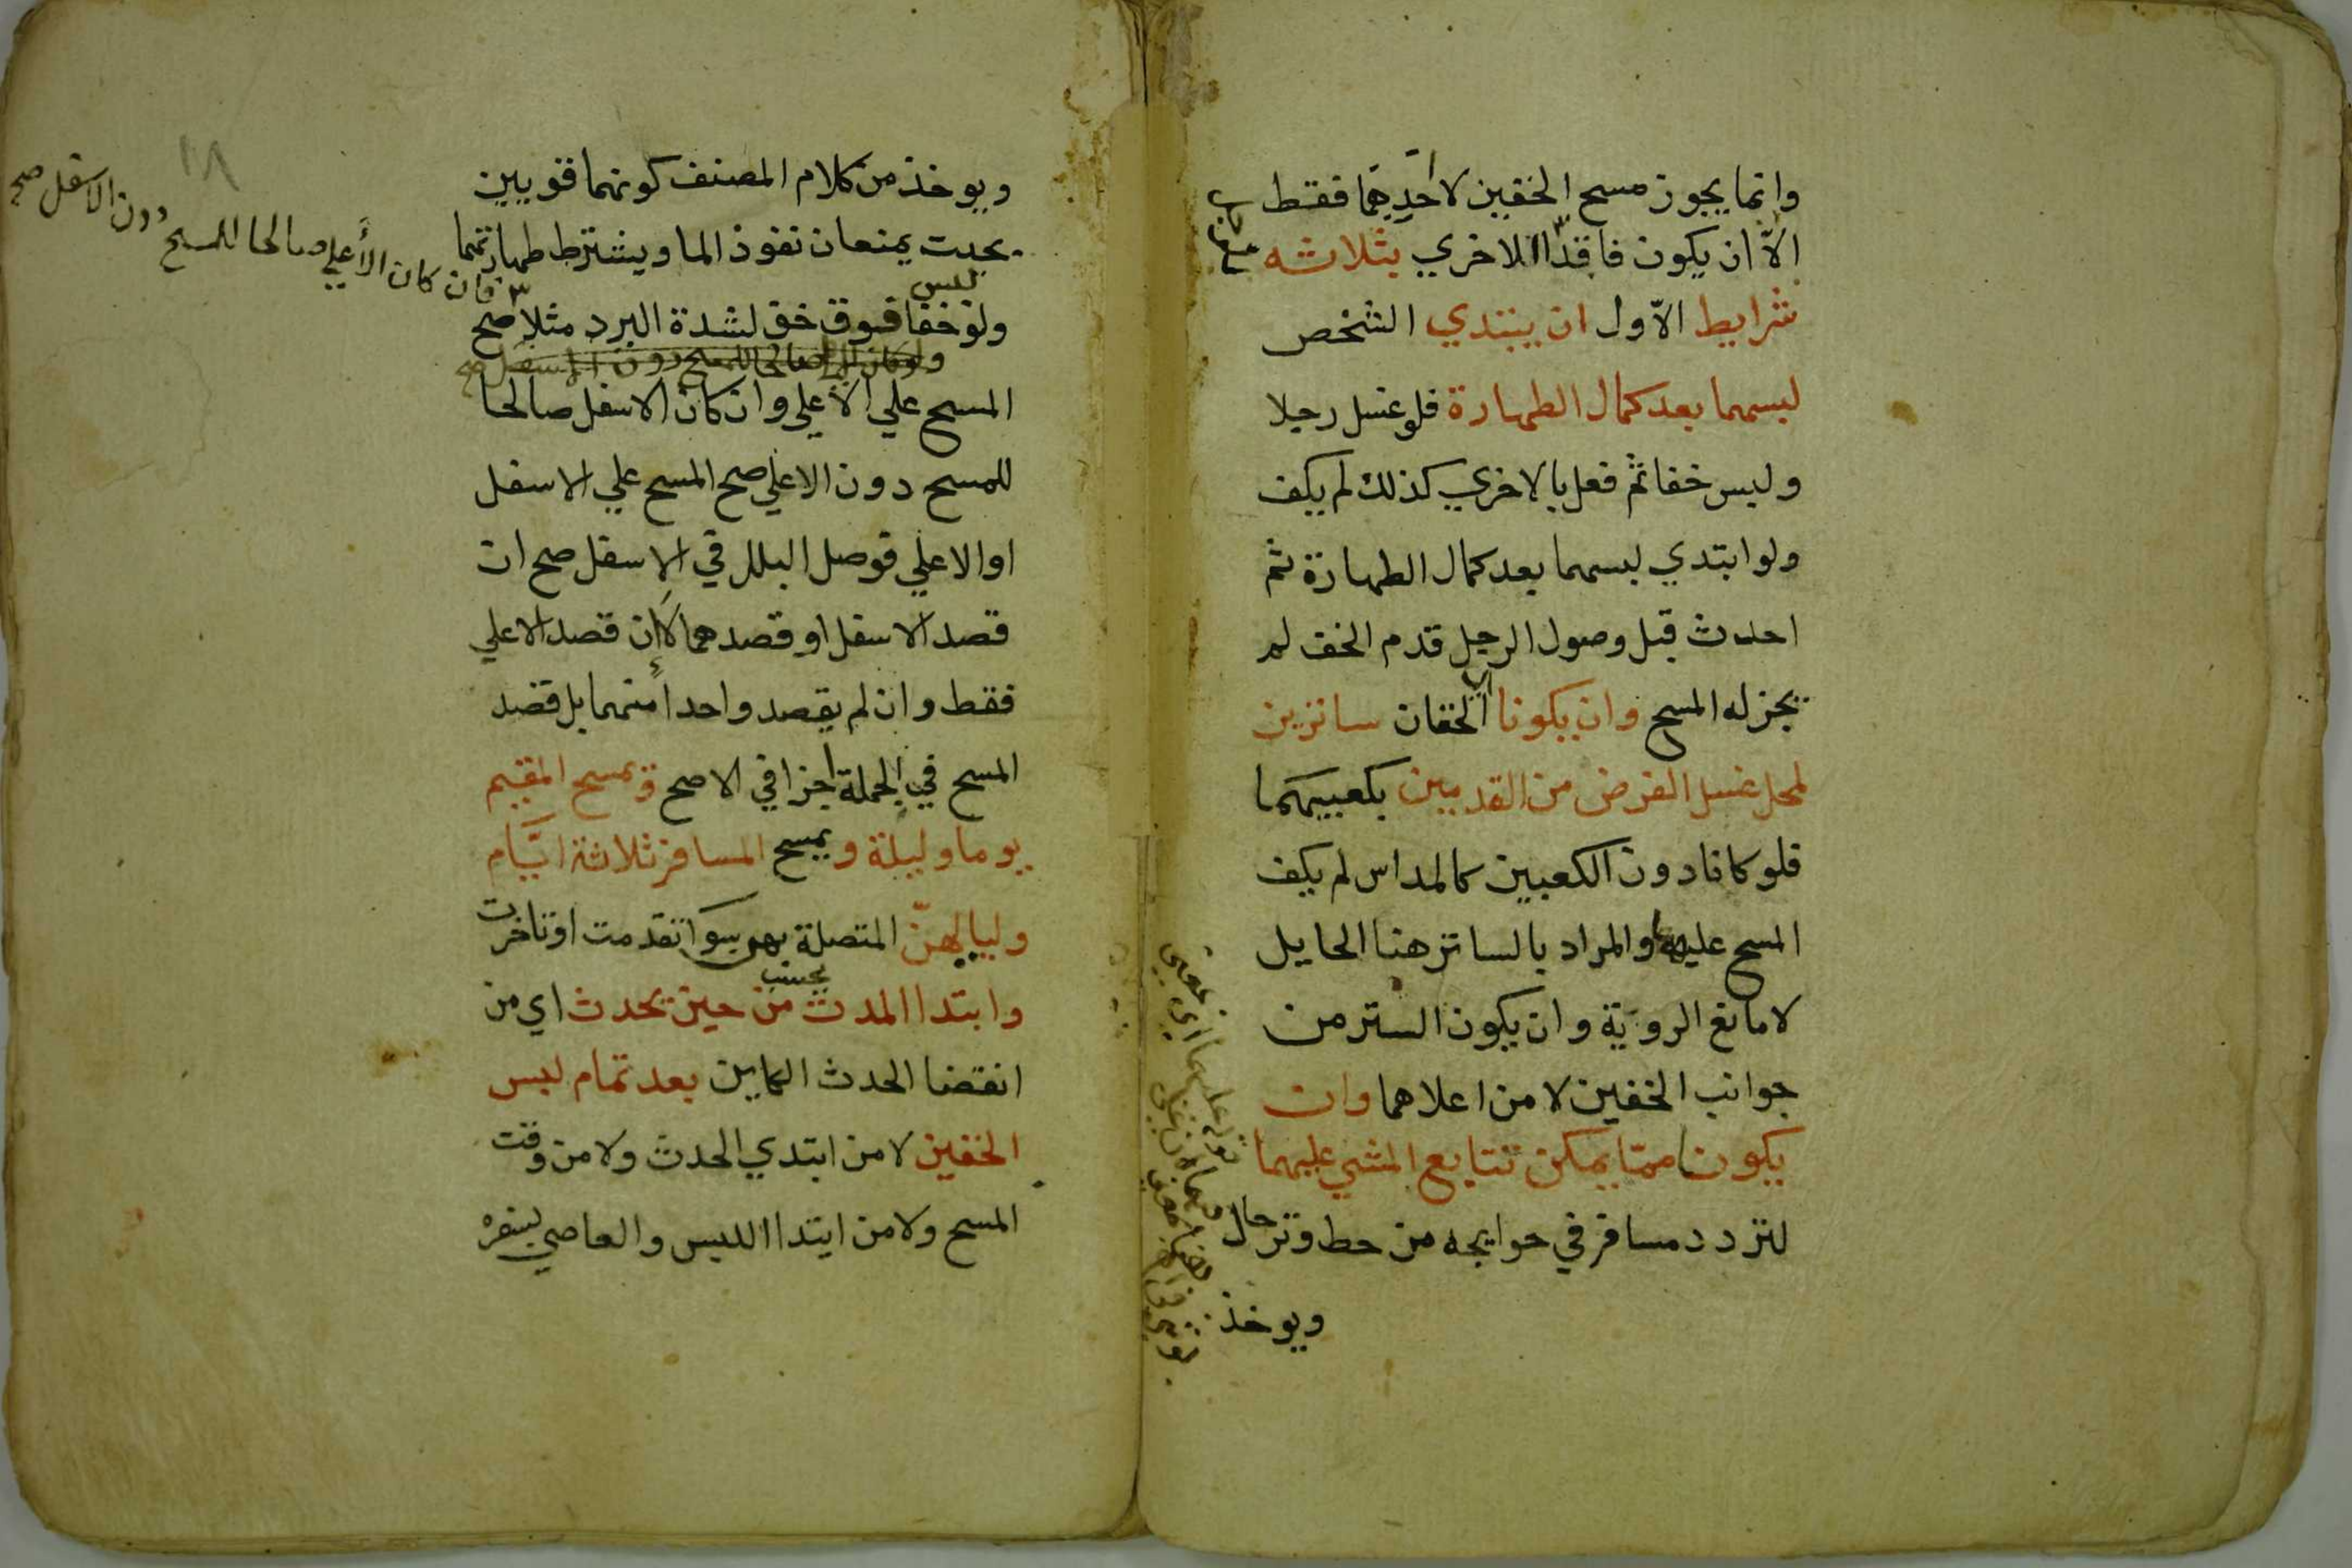 وانما يجوز مسح الخفين لا احدهما فقط
الا ان يكون فاقد الاخري بثلاثه
شرايط الاول ان يبتدي الشخص
لبسهما بعد كمال الطهارة فلو غسل رجلا
ولبس خفا ثم فعل بالاخري كذلك لم يكف
ولو ابتدي لبسهما بعد كمال الطهارة ثم
احدث قبل وصول الرجل قدم الخف لم
يجز له المسح وان يكونا اي الخفان ساترين
لمحل غسل الفرض من القدمين بكعبيهما
فلو كانا دون الكعبين كالمداس لم يكف
المسح عليهما والمراد بالساتر هنا الحايل
لا مانع الروية وان يكون الستر من
جوانب الخفين لا من اعلاهما وان
يكونا مما يمكن تتابع المشي عليهما
لتردد مسافر في حوايجه من حط وترحال
ويوخذ
ويوخذ من كلام المصنف كونهما قويين
بحيث يمنعان نفوذ الما ويشترط طهارتهما
ولو لبس خفا فوق خف لشدة البرد مثلا صح
فان كان الأعلي صالحا للمسح دون الاسفل صح
المسح علي الاعلي وان كان الاسفل صالحا
للمسح دون الاعلي صح المسح علي الاسفل
او الاعلي فوصل البلل في الاسفل صح ان
قصد الاسفل او قصدهما لا إن قصد الاعلي
فقط وان لم يقصد واحدا منهما بل قصد
المسح في الجملة اجزا في الاصح ويمسح المقيم
يوما وليلة ويمسح المسافر ثلاثة ايام
ولياليهن المتصلة بهن سوا تقدمت او تاخرت
وابتدا المدت تحسب من حين يحدث اي من
انقضا الحدث الكاين بعد تمام لبس
الخفين لا من ابتدي الحدث ولا من وقت
المسح ولا من ابتدا اللبس والعاصي بسفره
١٨